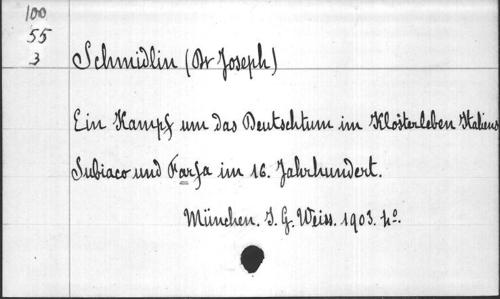 100
55
3
Schmidlin (Dr Joseph)
Ein Kampf um das Deutschtum im Klosterleben Italiens
Subiaco und Farfa im 16. Jahrhundert.
München. J. G. Weiss. 1903. 4º.